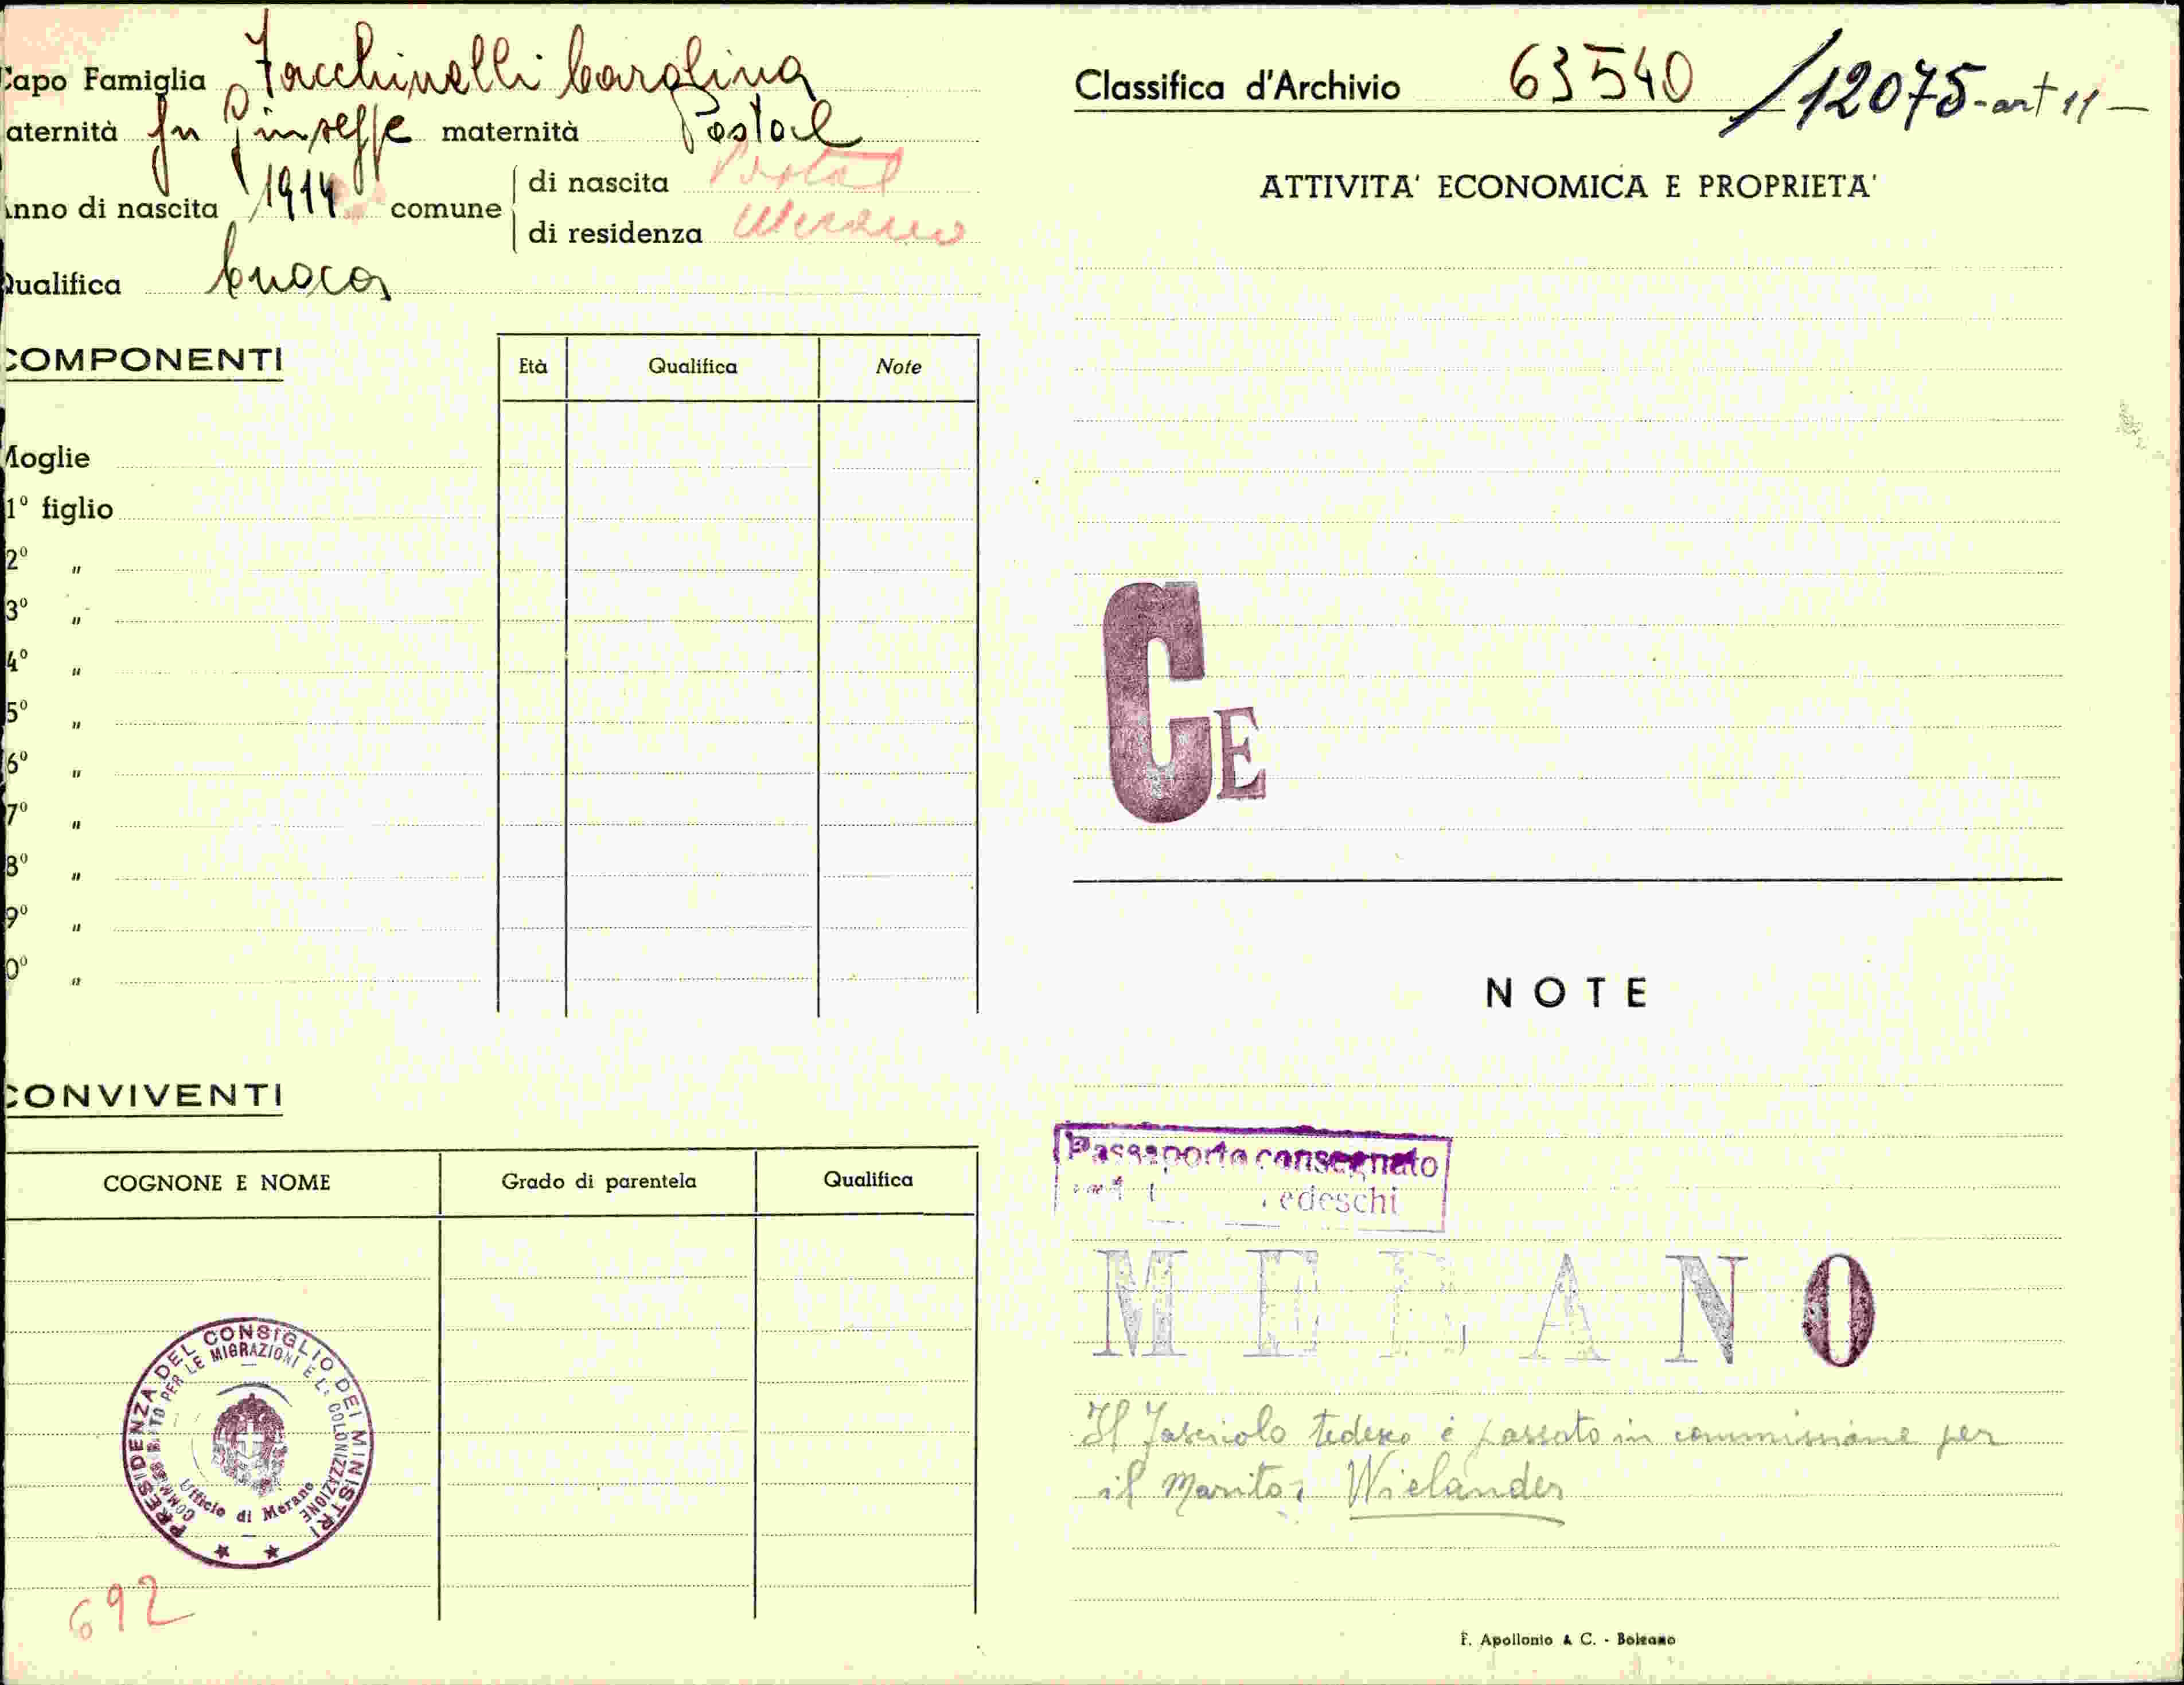 Capo Famiglia Facchinelli Carolina
aternità fu Giuseppe maternità Postal
Anno di nascita 1914 comune di nascita Postal
di residenza Merano
Qualifica Cuoca
COMPONENTI
Età Qualifica Note
Moglie
1º figlio
2º "
3º "
4º "
5º "
6º "
7º "
8º "
9º "
0º "
CONVIVENTI
COGNONE E NOME Grado di parentela Qualifica
PRESIDENZA DEL CONSIGLIO DEI MINISTRI
PER LE MIGRAZIONI E LA COLONIZZAZIONE
Ufficio di Merano
692
Classifica d'Archivio 63540 /12075-art 11-
ATTIVITA' ECONOMICA E PROPRIETA'
CE
NOTE
Passaporto consegnato
edeschi
MERANO
Il fascicolo tedesco è passato in commissione per
il marito: Wielander
F. Apollonio & C. - Bolzano